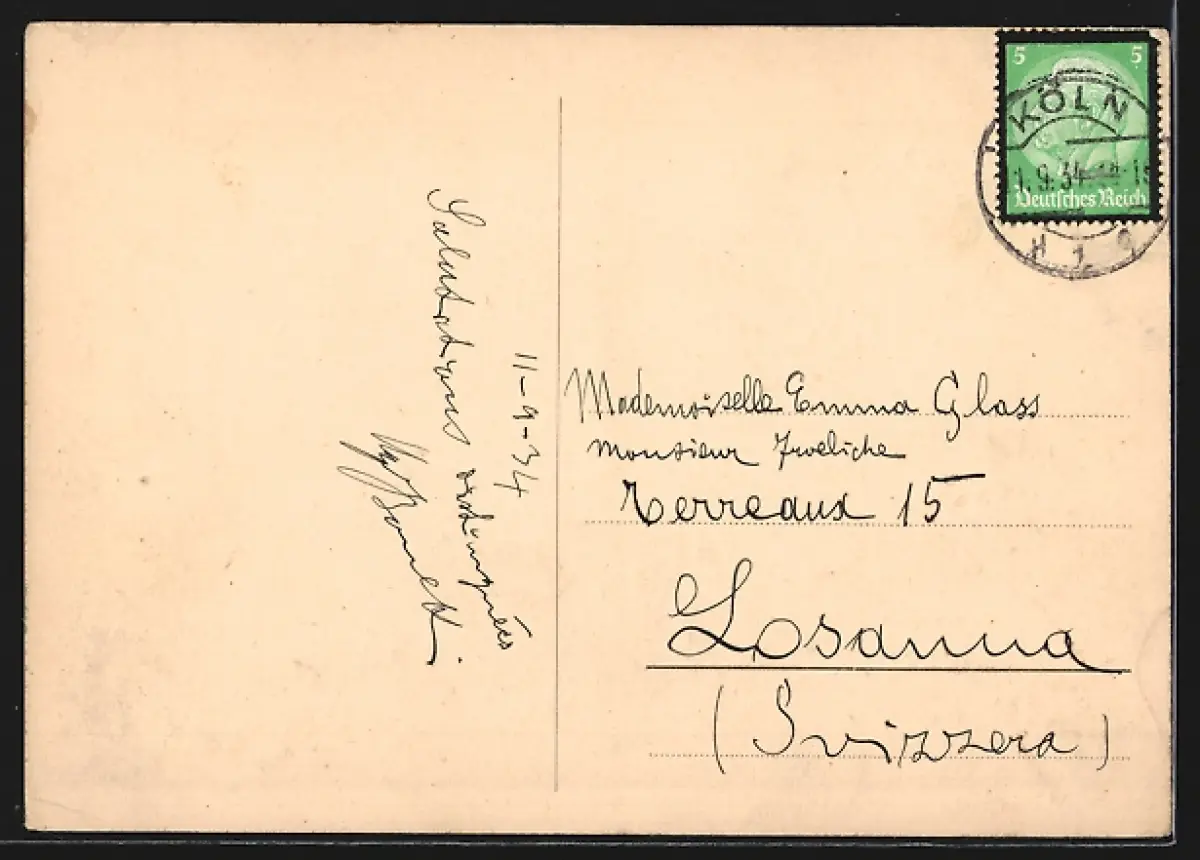 11-9-34
Salutations distingués
5 5
KÖLN
1.9.34
Deutsches Reich
Mademoiselle Emma Glass
Monsieur Froeliche
Terreaux 15
Losanna
(Svizzera)